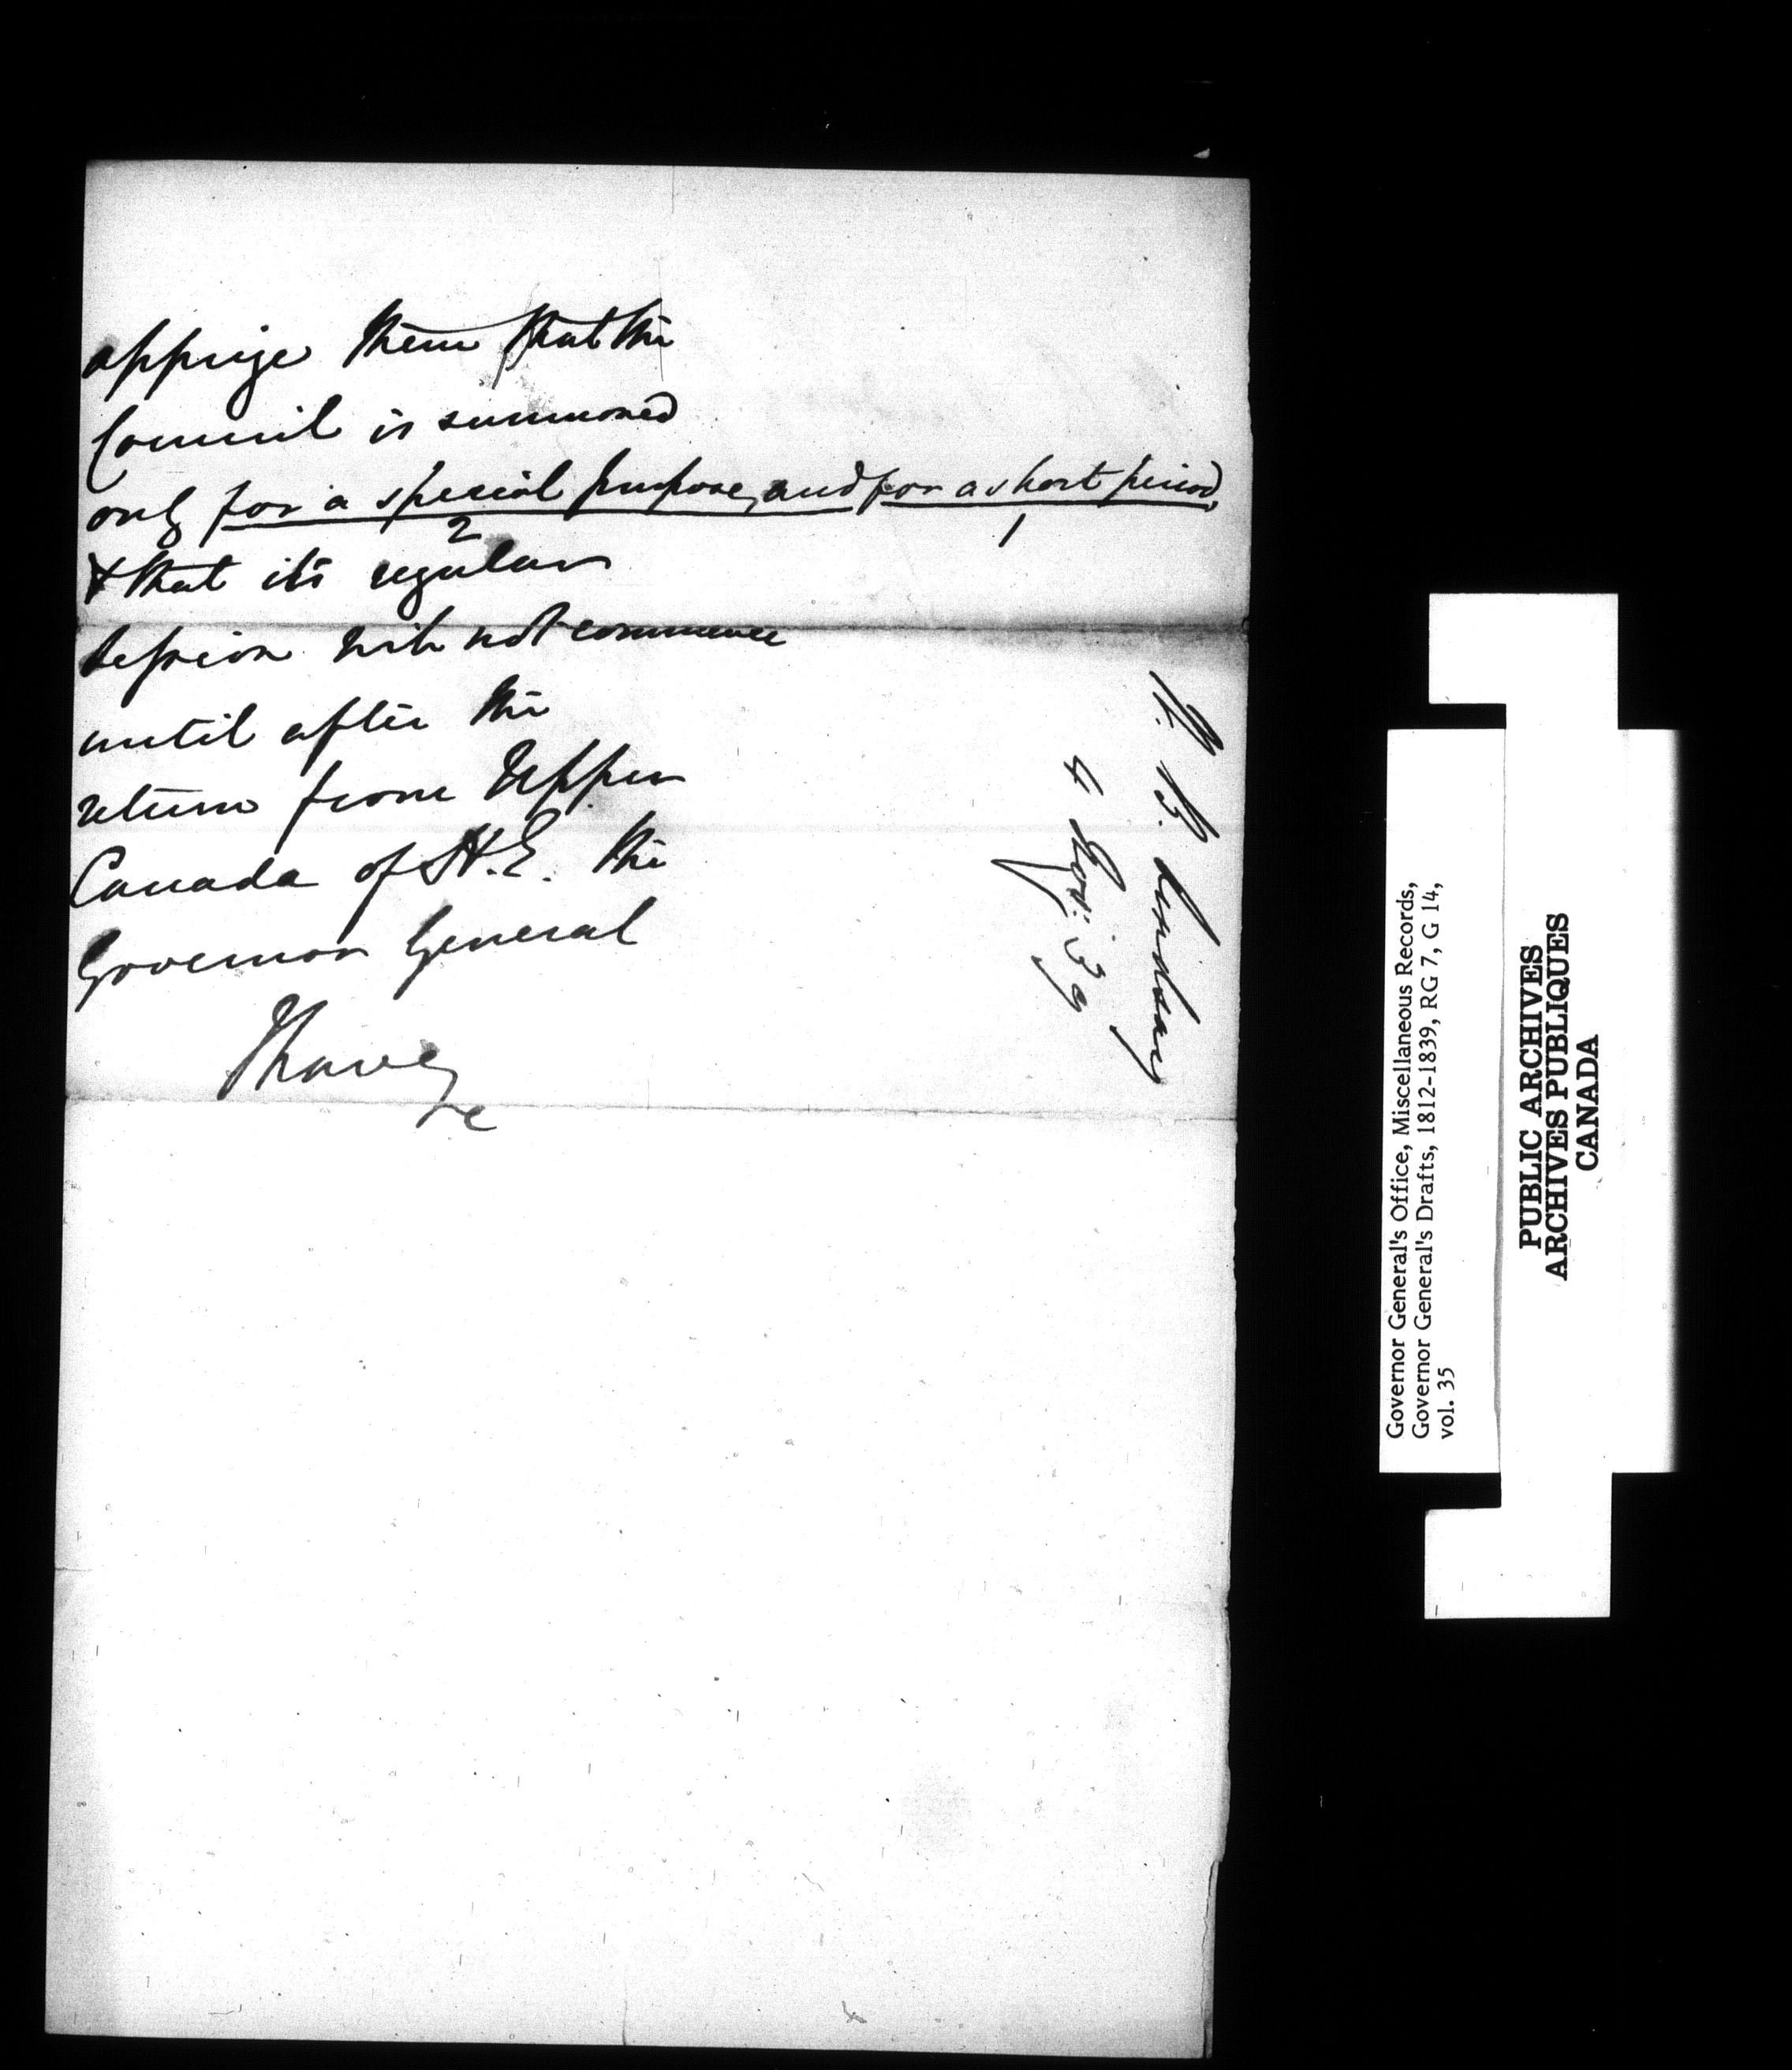 apprize them that the
Council is summoned
only for a special purpose, and for a short period,
2 1
& that its regular
Session will not commence
until after the
return from Upper
Canada of H.E. the
Governor General
I have
&c
W. B. Lindsay
4 Nov: 39
Governor General's Office, Miscellaneous Records,
Governor General's Drafts, 1812-1839, RG 7, G 14,
vol. 35
PUBLIC ARCHIVES
ARCHIVES PUBLIQUES
CANADA